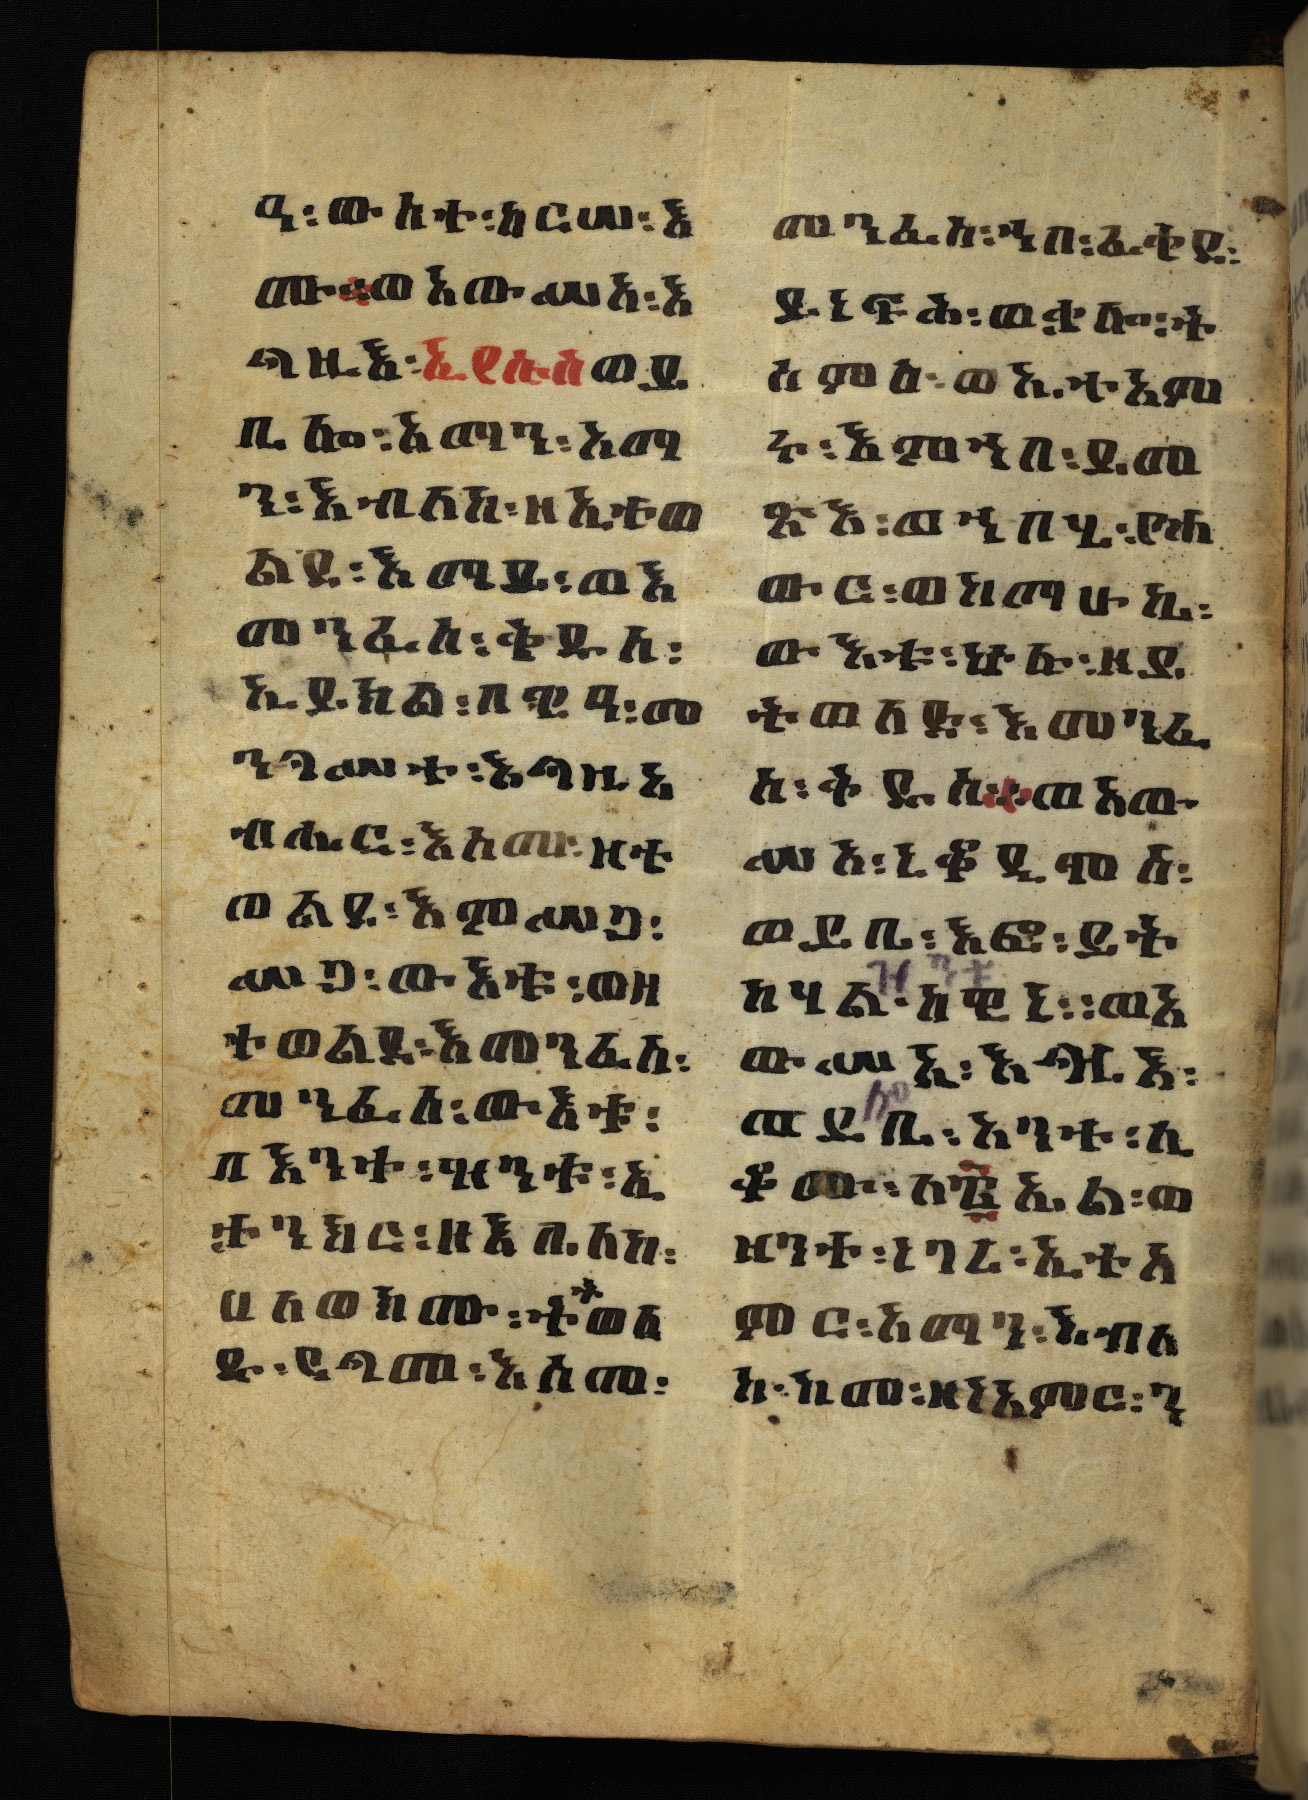 ዳ፡ውስተ፡ከርሠ፡እ
ሙ፡ወአውሥአ፡እ
ግዚእ፡ኢየሱስወይ
ቤሎ፡አማን፡አማ
ን፡እብለከ፡ዘኢተወ
ልደ፡እማይ፡ወእ
መንፈስ፡ቅዱስ፡
ኢይክል፡በዊዓ፡መ
ንግሥተ፡እግዚአ
ብሔር፡እስመ፡ዘተ
ወልደ፡እምሥጋ፡
ሥጋ፡ውእቱ፡ወዘ
ተወልደ፡እመንፈስ፡
መንፈስ፡ውእቱ፡
በእንተ፡ዝንቱ፡ኢ
ታንክር፡ዘእቤለከ፡
ሀለወክሙ፡ትወለ
ዱ፡ዳግመ፡እስመ፡
መንፈስ፡ኀበ፡ፈቀደ፡
ይነፍሕ፡ወቃሎ፡ት
ሰምዕ፡ወኢተአም
ር፡እምኀበ፡ይመ
ጽእ፡ወኀበ፡የሐ
ውር፡ወከማሁኬ፡
ውእቱ፡ኵሉ፡ዘይ
ትወለድ፡እመንፈ
ስ፡ቅዱስ፡ወአው
ሥአ፡ኒቆዲሞስ፡
ወይቤ፡እፎ፡ይት
ዝንቱ
ከሃል፡ከዊነ፡፡ወአ
ውሥአ፡እግዚእ፡
ሎ
ወይቤ፡አንተ፡ሊ
ቆሙ፡ለ፳ኤል፡ወ
ዘንተ፡ነገረ፡ኢተአ
ምር፡አማን፡እብለ
ከ፡ከመ፡ዘነአምር፡ን